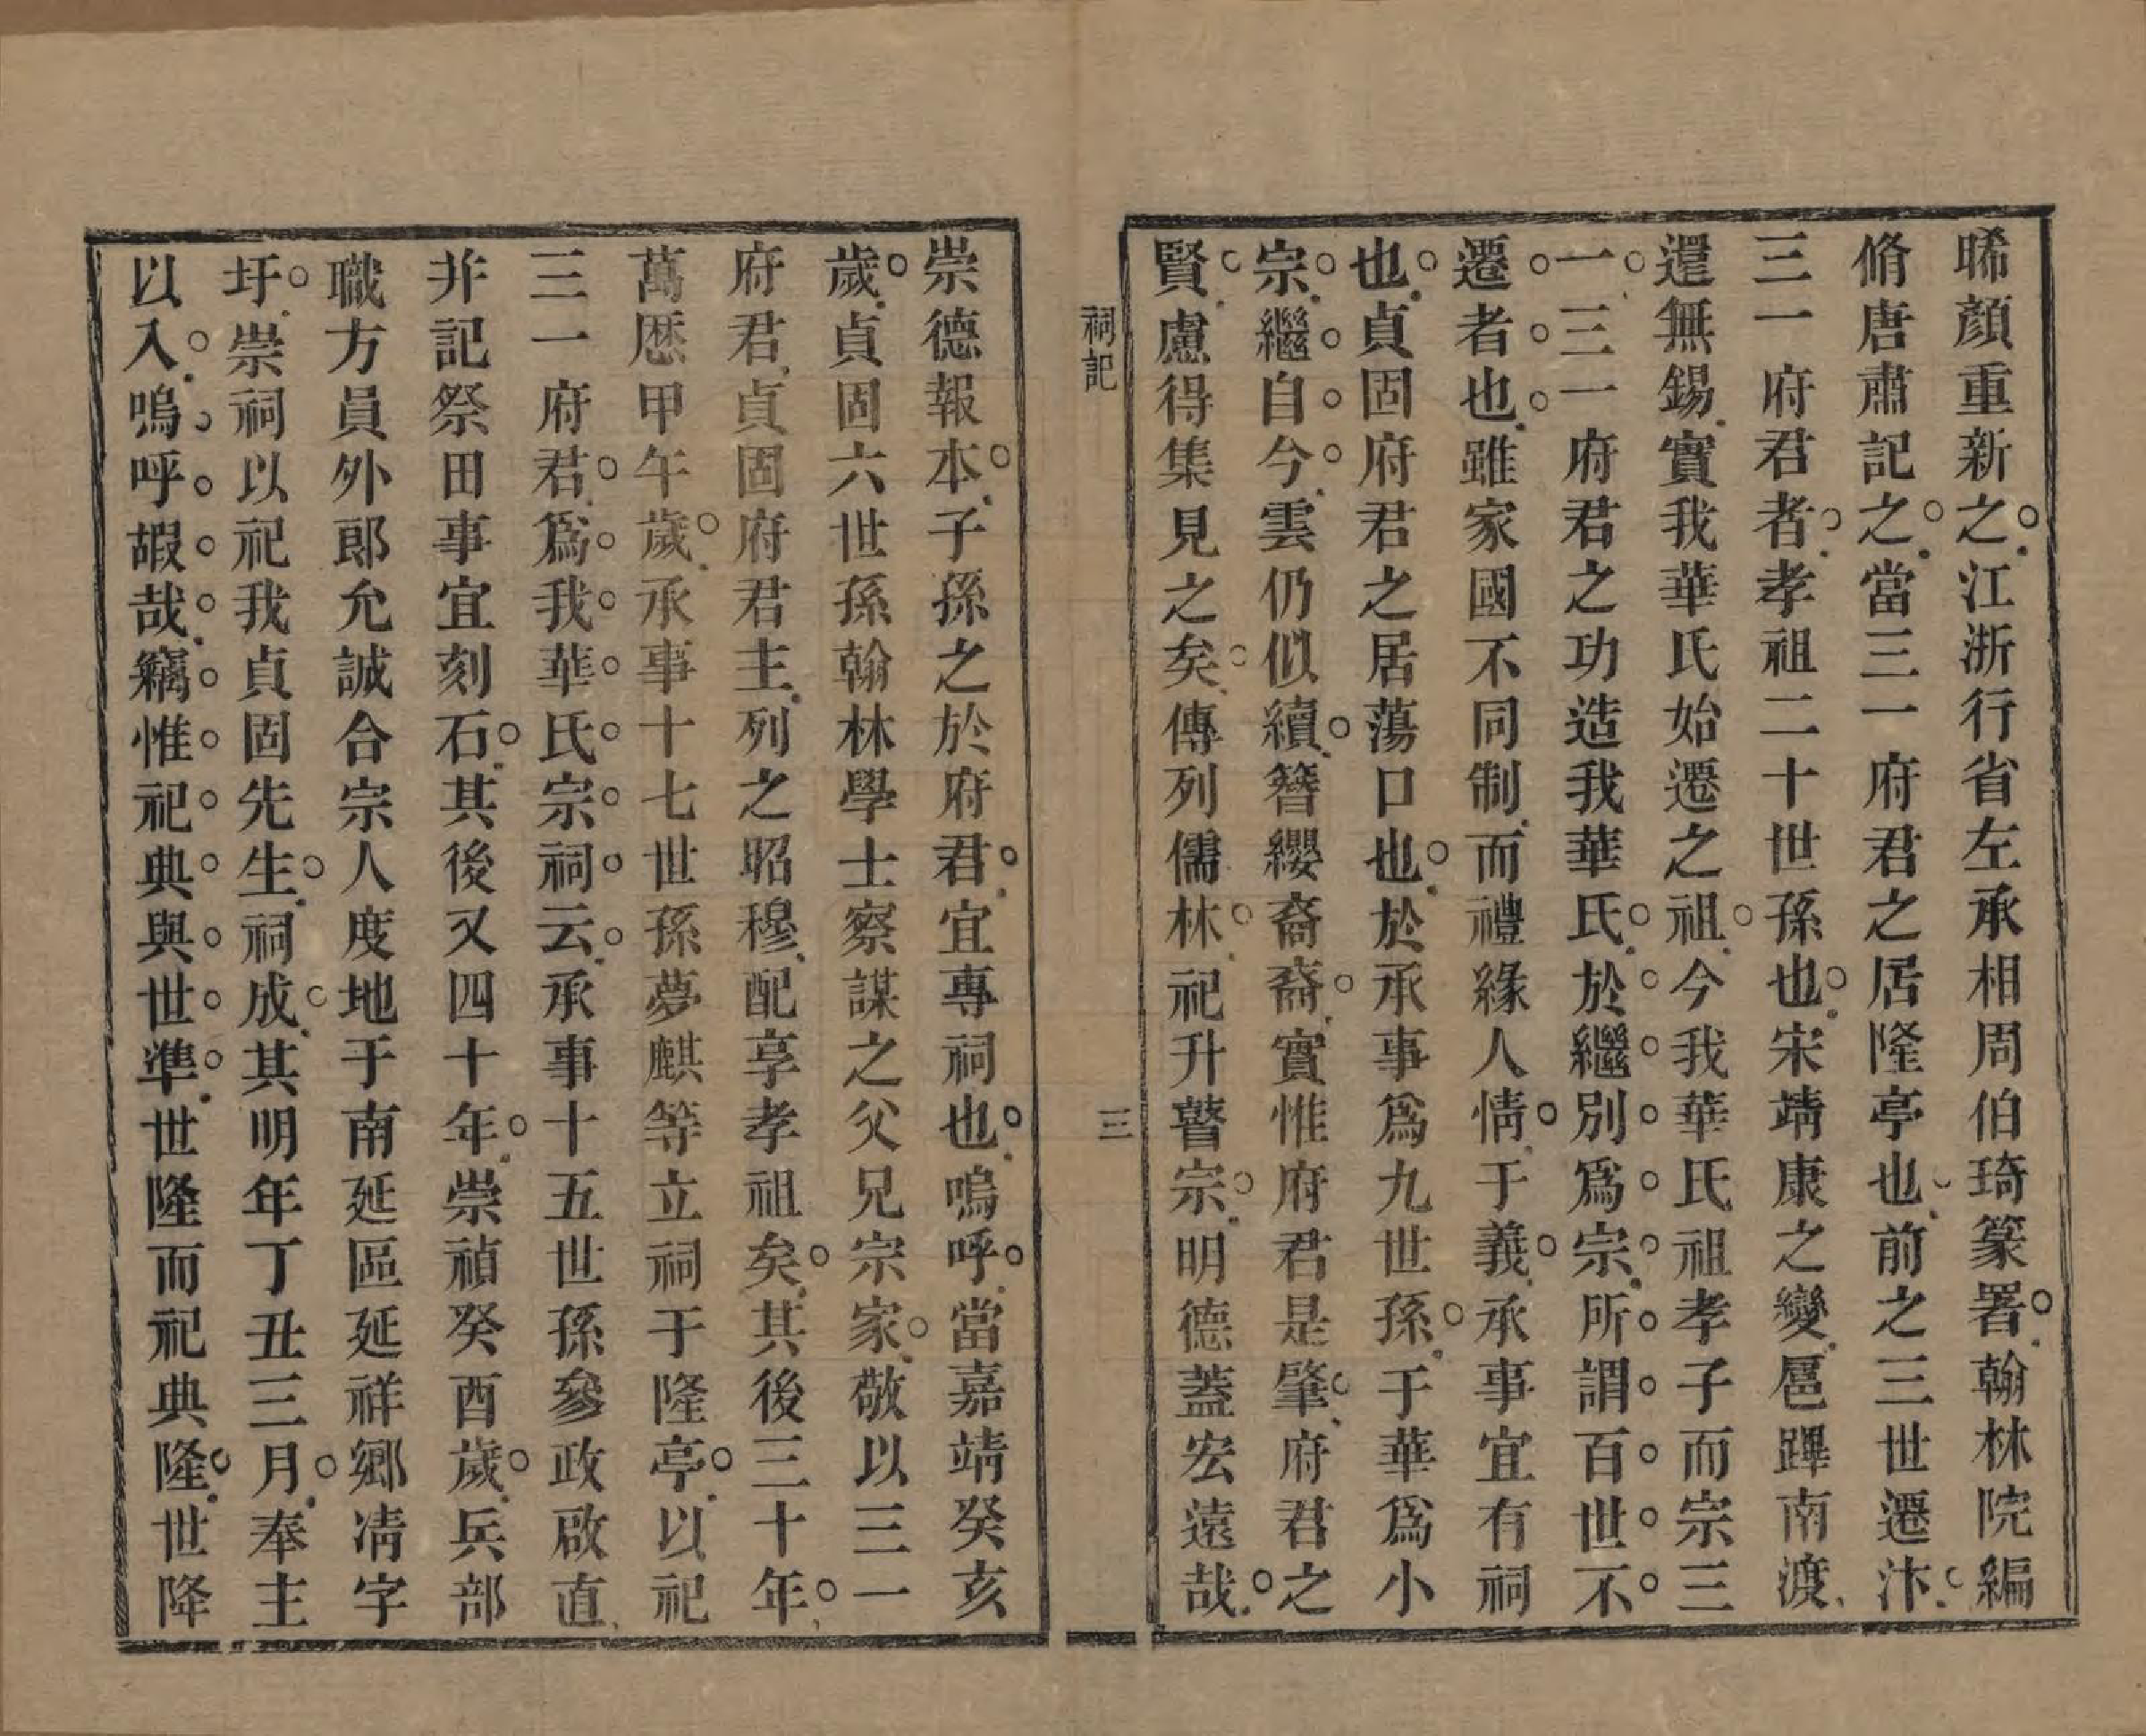 睎顔重新之江浙行省左承相周伯琦篆署翰林院編
脩唐肅記之當三一府君之居隆亭也前之三世遷汴
三一府君者孝祖二十世孫也宋靖康之變扈蹕南渡
還無錫實我華氏始遷之祖今我華氏祖孝子而宗三
一三一府君之功造我華氏於繼别爲宗所謂百世不
遷者也雖家國不同制而禮緣人情于義承事宜有祠
也貞固府君之居蕩口也於承事爲九世孫于華爲小
宗繼自今雲仍似續簪纓裔裔實惟府君是肇府君之
賢慮得集見之矣傳列儒林祀升瞽宗明德蓋宏遠哉
祠記
三
崇德報本子孫之於府君宜專祠也嗚呼當嘉靖癸亥
歲貞固六世孫翰林學士察謀之父兄宗家敬以三一
府君貞固府君主列之昭穆配享孝祖矣其後三十年
萬厯甲午歲承事十七世孫夢麒等立祠于隆亭以祀
三一府君爲我華氏宗祠云承事十五世孫參政啟直
并記祭田事宜刻石其後又四十年崇禎癸酉歲兵部
職方員外郎允誠合宗人度地于南延區延祥鄉凊字
圩崇祠以祀我貞固先生祠成其明年丁丑三月奉主
以入嗚呼嘏哉竊惟祀典與世準世隆而祀典隆世降